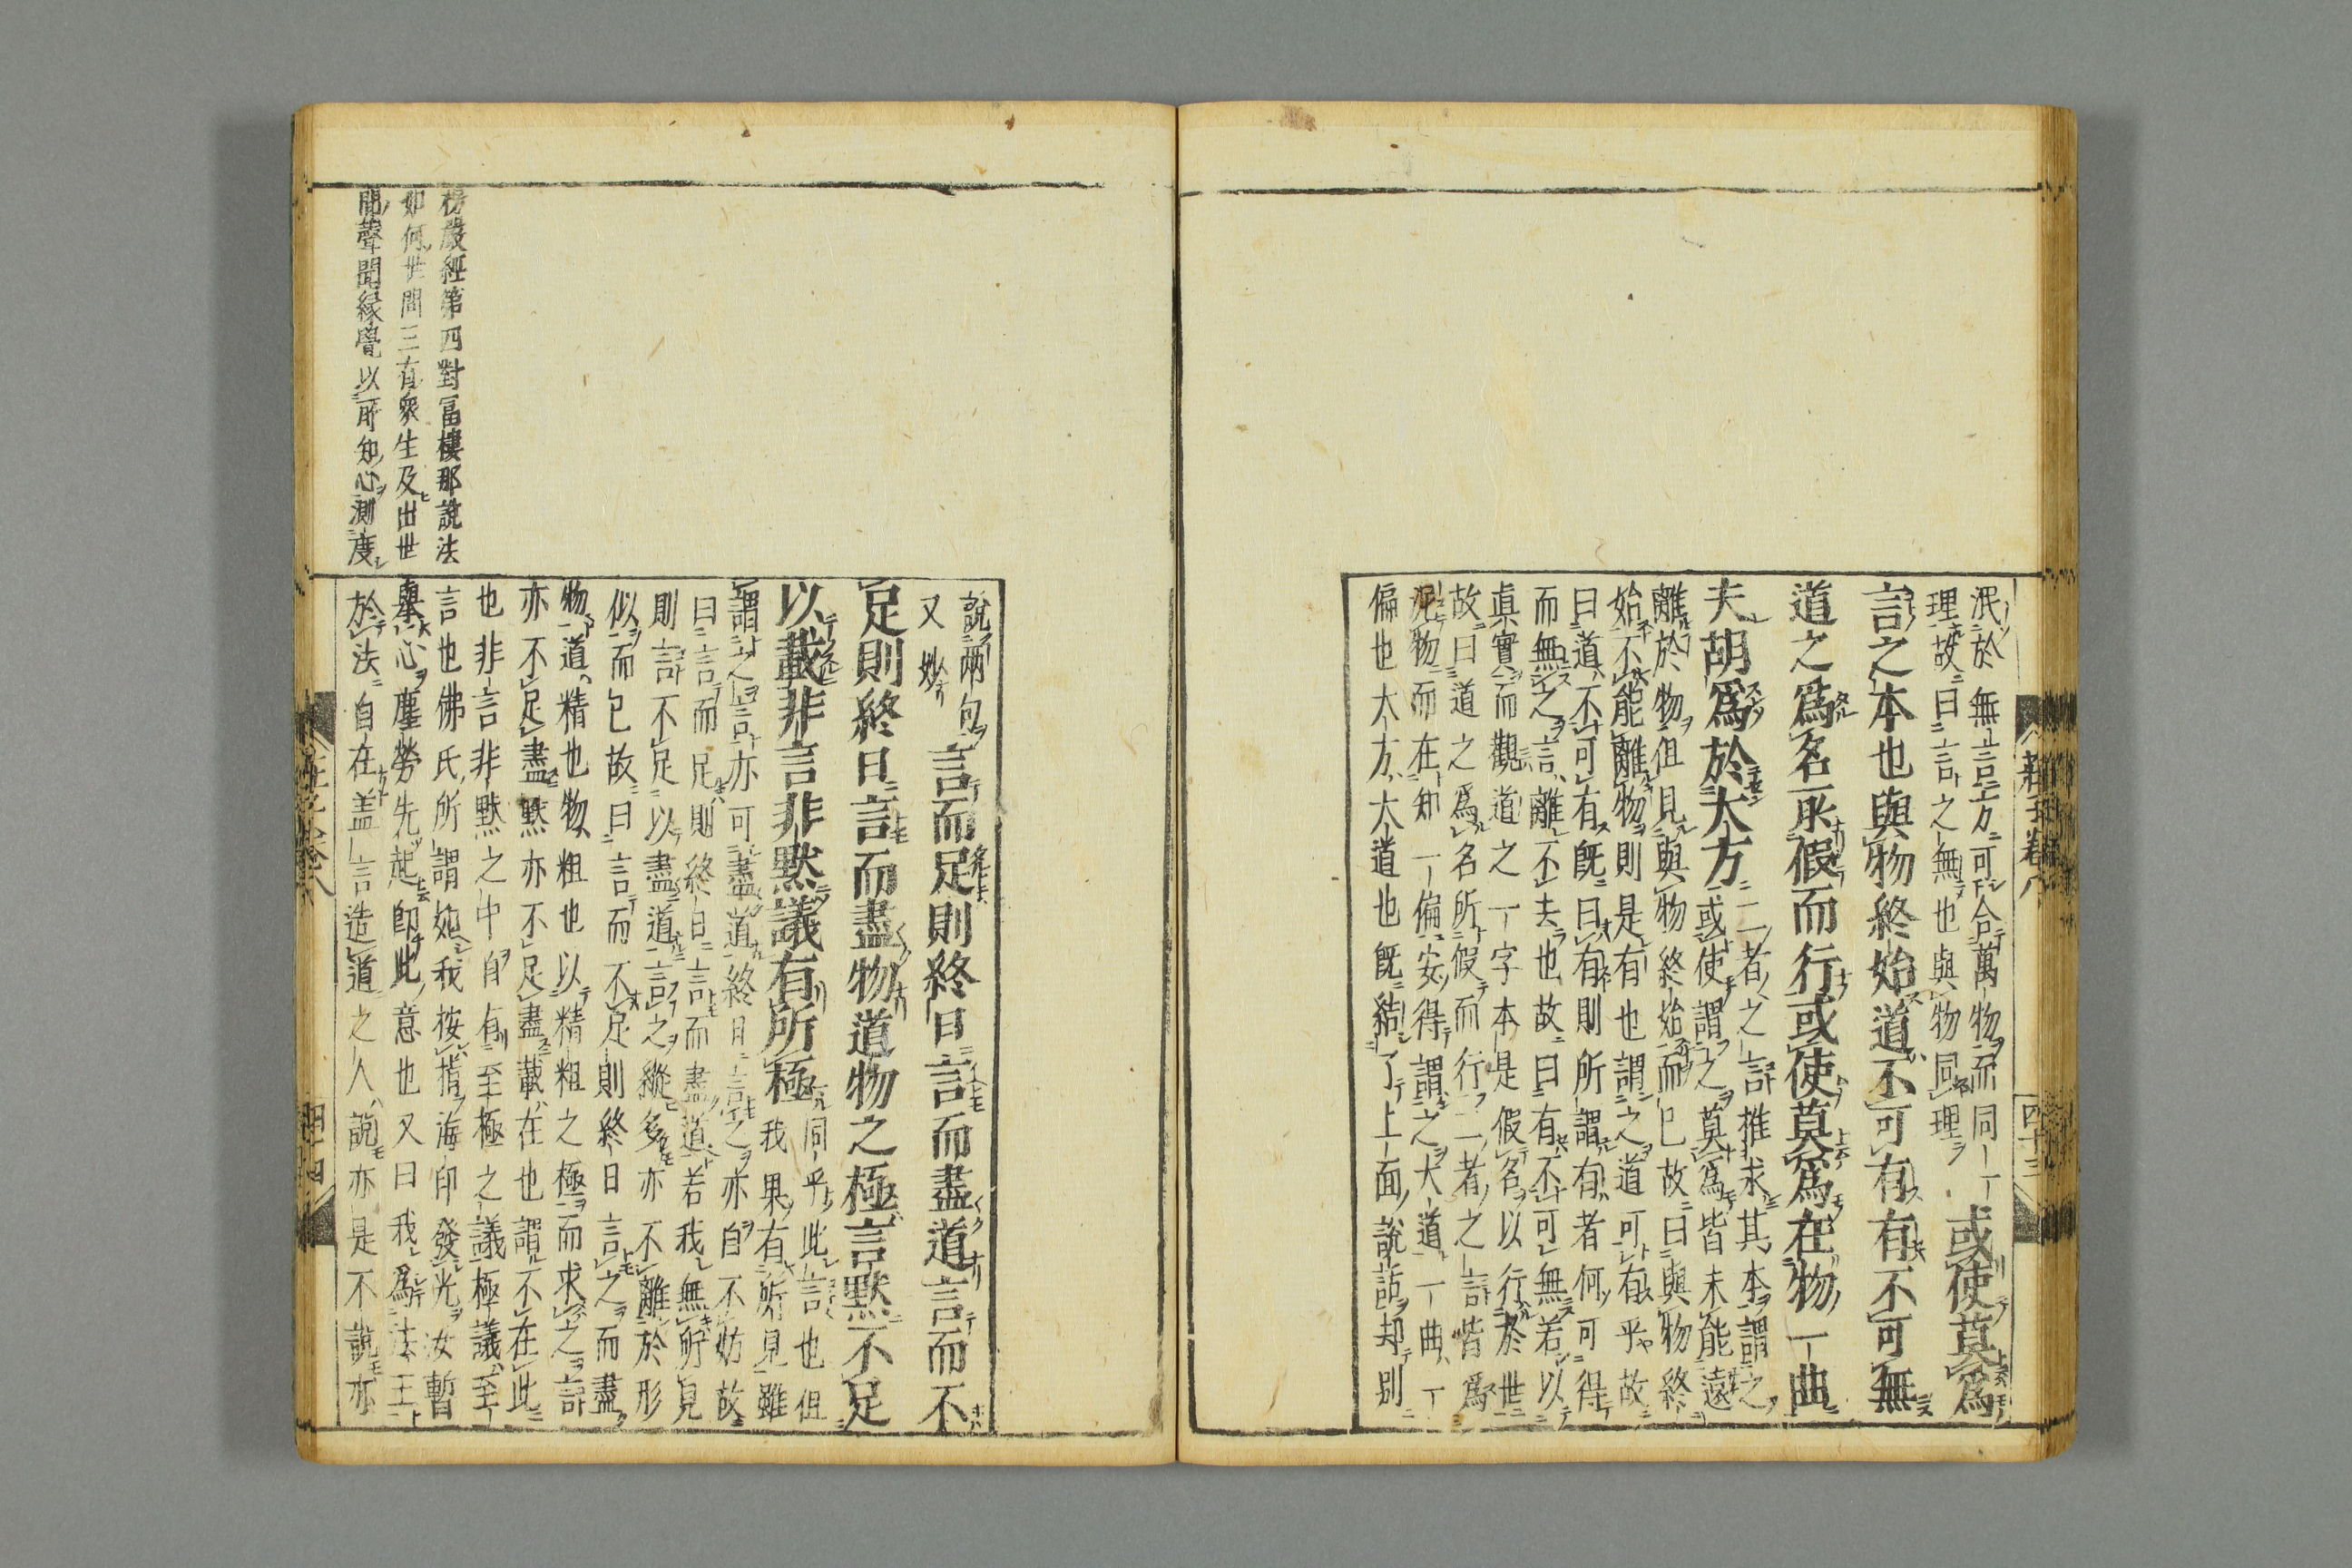 莊子卷八
四十三
泯於無言方可合萬物而同一
理故曰言之無也與物同理
或使莫爲
言之本也與物終始道不可有有不可無
道之爲名所假而行或使莫爲在物一曲
夫胡爲於大方
二者之言推求其本謂之
或使謂之莫爲皆未能遠
離於物但見與物終始而已故曰與物終
始不能離物則是有也謂之道可有乎故
曰道不可有既曰有則所謂有者何可得
而無之言離不去也故曰有不可無若以
眞實而觀道之一字本是假名以行於世
故曰道之爲名所假而行二者之言皆爲
泥物而在知一偏安得謂之大道一曲一
偏也大方大道也既結了上面說話却別
說兩句
又妙
言而足則終日言而盡道言而不
足則終日言而盡物道物之極言默不足
以載非言非默議有所極
同乎此言也但
我果有所見雖
謂之言亦可盡道終日言之亦自不妨故
曰言而足則終日言而盡道若我無所見
則言不足以盡道言之縱多亦不離於形
似而已故曰言而不足則終日言之而盡
物道精也物粗也以精粗之極而求之言
亦不足盡默亦不足盡載在也謂不在此
也非言非默之中自有至極之議極議至
言也佛氏所謂如我按指海印發光汝暫
擧心塵勞先起即此意也又曰我爲法王
於法自在蓋言造道之人說亦是不說亦
楞嚴經第四對富樓那說法
如何世間三有衆生及出世
間聲聞緣覺以所知心測度